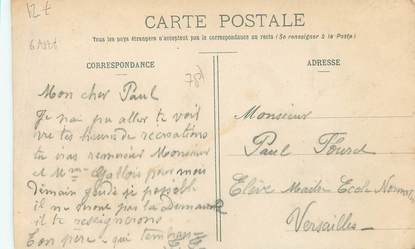 12 t
CARTE POSTALE
Tous les pays étrangers n'acceptent pas la correspondance au recto (Se renseigner à la Poste)
CORRESPONDANCE
Mon cher Paul
Je n'ai pu aller te voir
vu tes heures de recreations
tu iras remercier Monsieur
et Mme Gallois pour moi
Demain jeudi si possible
il ne
il te renseignera
Ton père qui t'embrasse
78
ADRESSE
Monsieur
Paul
Elève Maitre Ecole Normale
Versailles